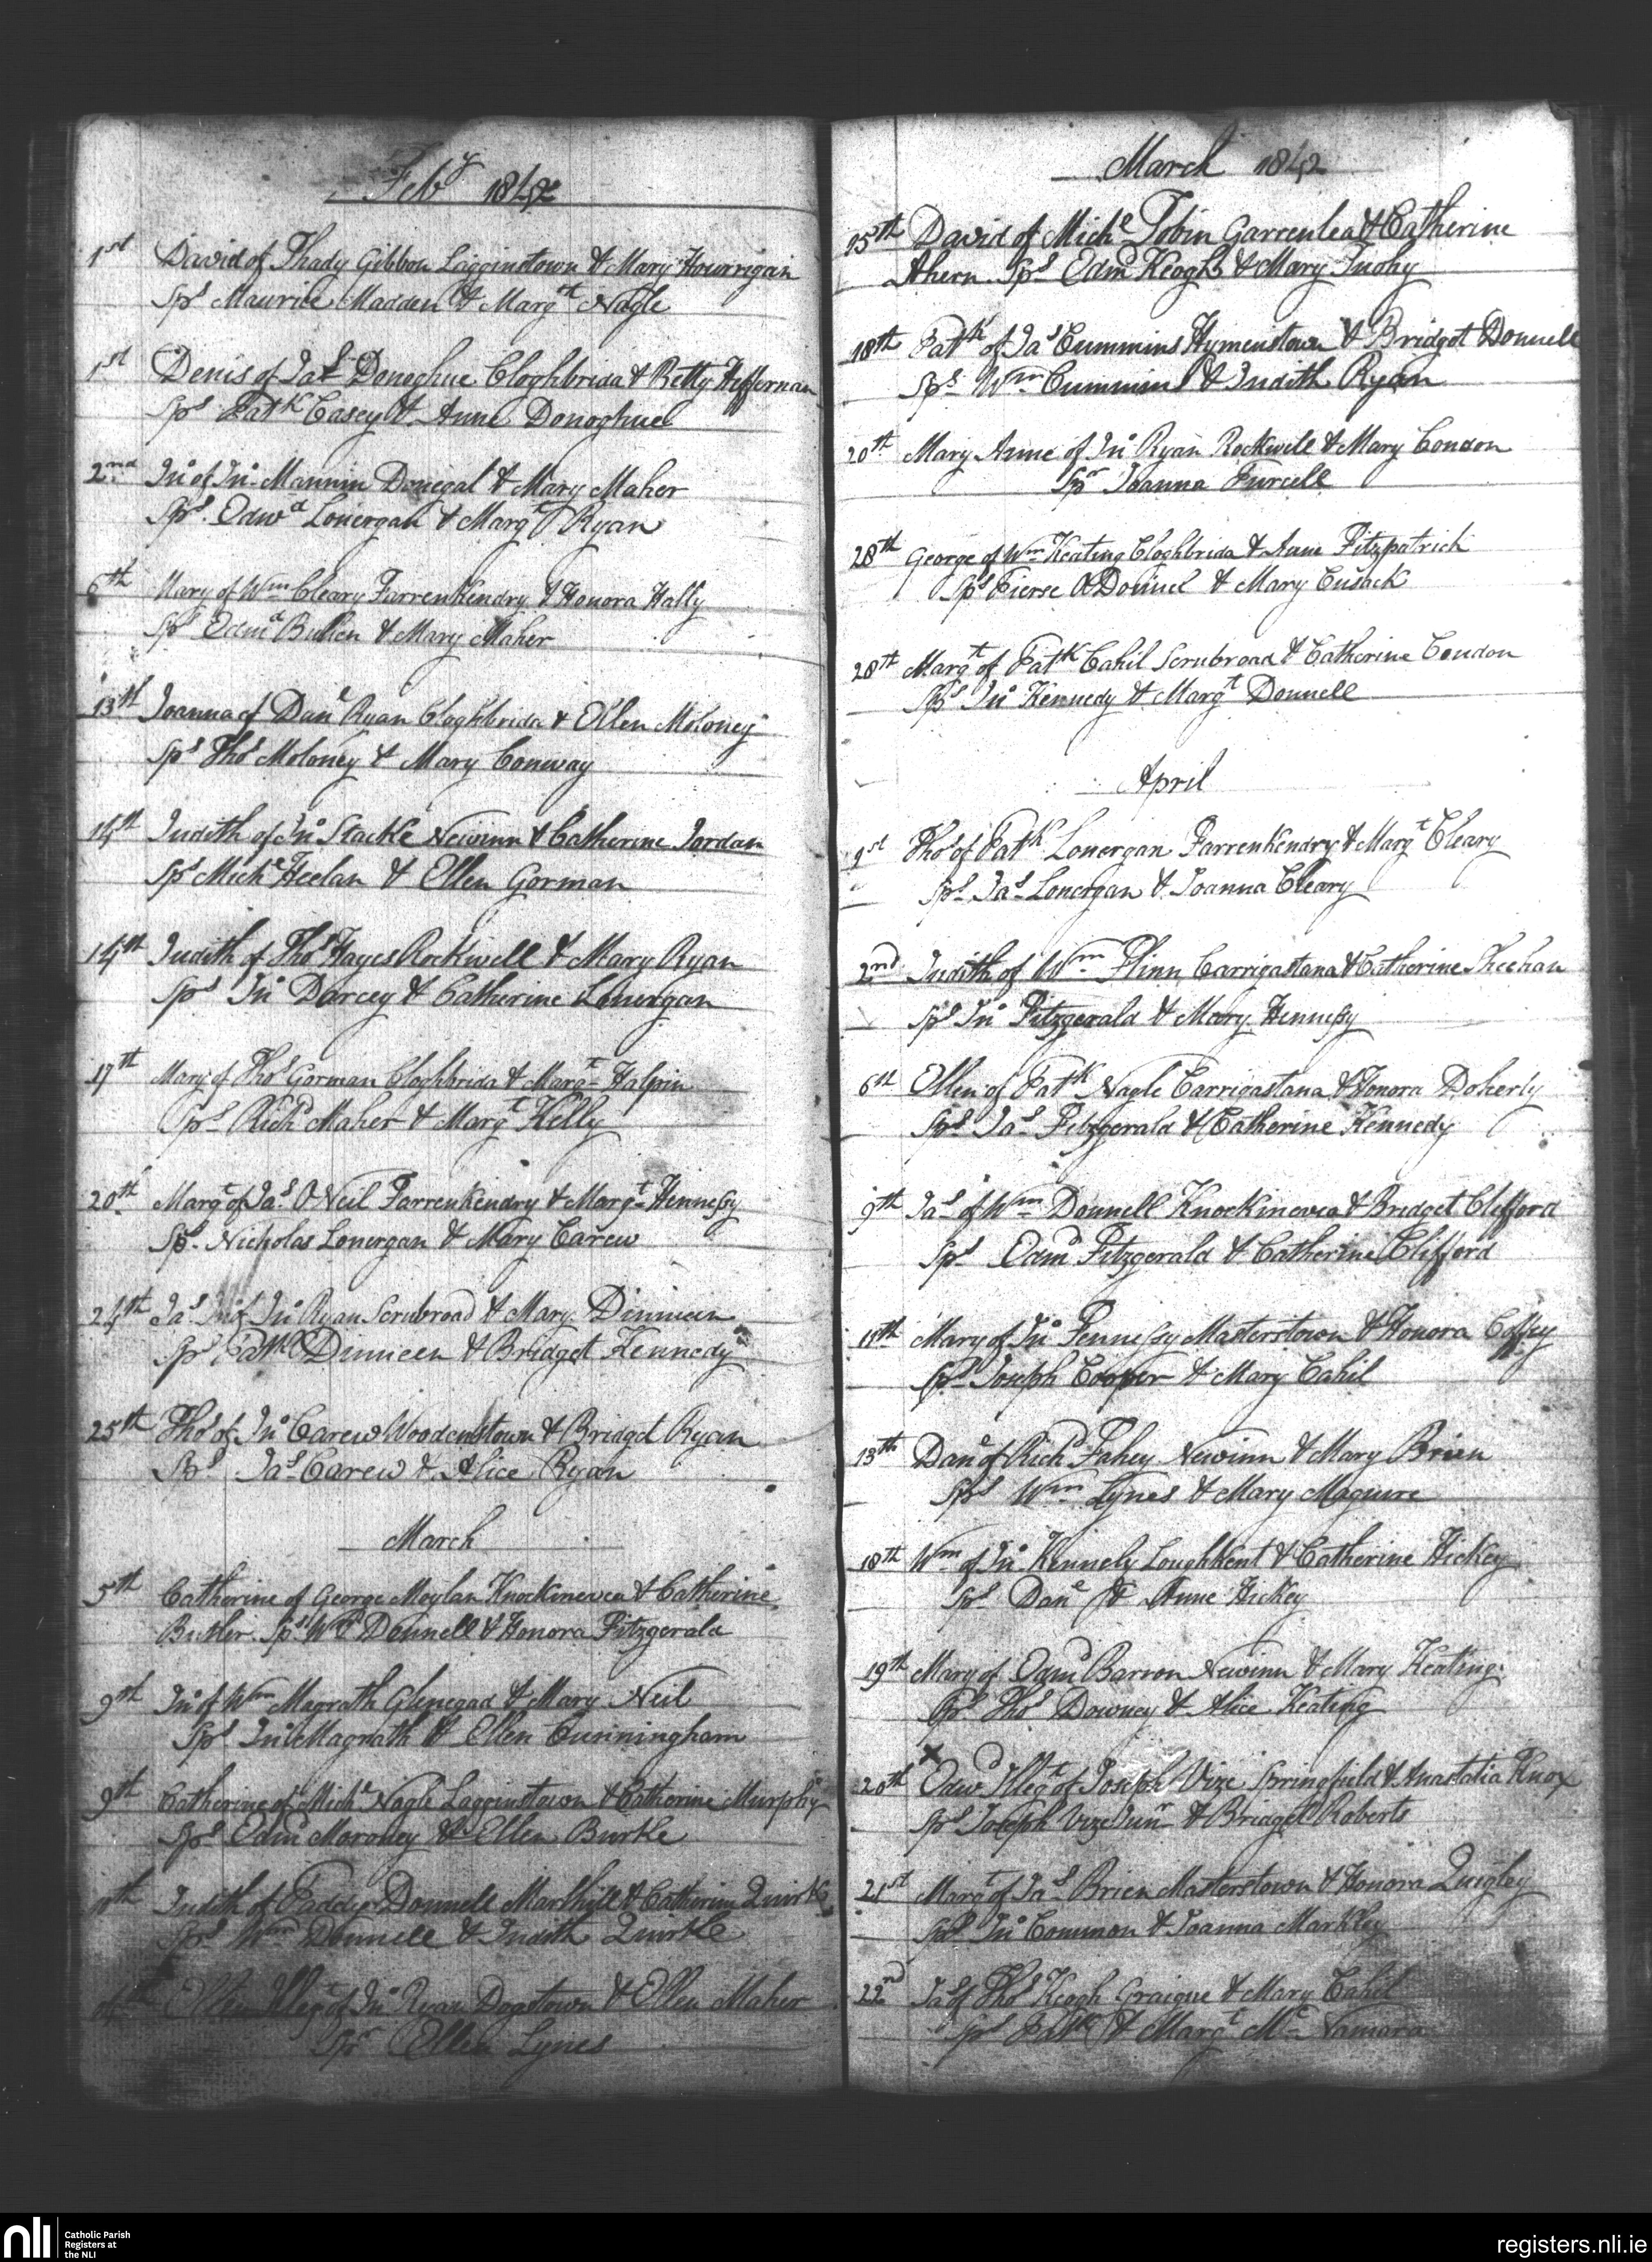 Feby 1842
1st David of Thady Gibbon Lagginstown & Mary Hourrigan
Sps Maurice Madden & Margt Nagle
1st Denis of Jas Donoghue Cloghbrida & Betty Heffernan
Sps Patk Casey & Anne Donoghue
2nd Jno of Jno Mannin Donegal & Mary Maher
Sps Edwd Lonergan & Margt Ryan
6th Mary of Wm Cleary Farrenkendry & Honora Hally
Sps Edmd Bullen & Mary Maher
13th Joanna of Danl Ryan Cloghbrida & Ellen Moloney
Sps Thos Moloney & Mary Conway
14th Judith of Jno Stacke Newinn & Catherine Jordan
Sps Michl Heelan & Ellen Gorman
14th Judith of Thos Hayes Rockwell & Mary Ryan
Sps Jno Darcey & Catherine Lonergan
17th Mary of Thos Gorman Cloghbrida & Margt Halpin
Sps Richd Maher & Margt Kelly
20th Margt of Jas O Neil Farrenkendry & Margt Hennessy
Sps Nicholas Lonergan & Mary Carew
24th Jas of Jno Ryan Scrubroad & Mary Dinneen
Sps Patk Dinneen & Bridget Kennedy
25th Thos of Jno Carew Woodenstown & Bridget Ryan
Sps Jas Carew & Alice Ryan
March
5th Catherine of George Moylan Knockinevea & Catherine
Butler Sps Wm Donnell & Honora Fitzgerald
9th Jno of Wm Magrath Glenegad & Mary Neil
Sps Jno Magrath & Ellen Cunningham
9th Catherine of Michl Nagle Lagginstown & Catherine Murphy
Sps Edmd Moroney & Ellen Burke
Judith of Paddy Donnell Marlhill & Catherine Quirke
Sps Wm Donnell & Judith Quirke
Ellen Illegt of Jno Ryan Dogstown & Ellen Maher
Spr Ellen Lynes
March 1842
15th David of Michl Tobin Garrenlea & Catherine
Ahern Sps Edmd Keogh & Mary Tuohy
18th Patk of Jas Cummins Hymenstown & Bridget Donnell
Sps Wm Cummins & Judith Ryan
20th Mary Anne of Jno Ryan Rockwell & Mary Condon
Spr Joanna Purcell
28th George of Wm Keating Cloghbrida & Anne Fitzpatrick
Sps Pierse O Donnel & Mary Cusack
28th Margt of Patk Cahil Scrubroad & Catherine Condon
Sps Jno Kennedy & Margt Donnell
April
1st Thos of Patk Lonergan Farrenkendry & Margt Cleary
Sps Jas Lonergan & Joanna Cleary
2nd Judith of Wm Flinn Carrigastana & Catherine Sheehan
Sps Jno Fitzgerald & Mary Hennessy
6th Ellen of Patk Nagle Carrigastana & Honora Doherty
Sps Jas Fitzgerald & Catherine Kennedy
9th Jas of Wm Donnell Knockinevea & Bridget Clifford
Sps Edmd Fitzgerald & Catherine Clifford
11th Mary of Jno Fennessy Masterstown & Honora Coffey
Sps Joseph Cooper & Mary Cahil
13th Danl of Richd Fahey Newinn & Mary Brien
Sps Wm Lynes & Mary Maguire
18th Wm of Jno Kennely Loughkent & Catherine Hickey
Sps Danl & Anne Hickey
19th Mary of Edmd Barron Newinn & Mary Keating
Sps Thos Downey & Alice Keating
x
20th Edwd Illegt of Joseph Vize Springfield & Anastatia Knox
Sps Joseph Vize Junr & Bridget Roberts
21st Margt of Jas Brien Masterstown & Honora Quigley
Sps Jno Common & Joanna Markley
22nd Jas of Thos Keogh Graigue & Mary Cahil
Sps Patk & Margt Mc Namara
nli Catholic Parish
Registers at
the NLI
registers.nli.ie